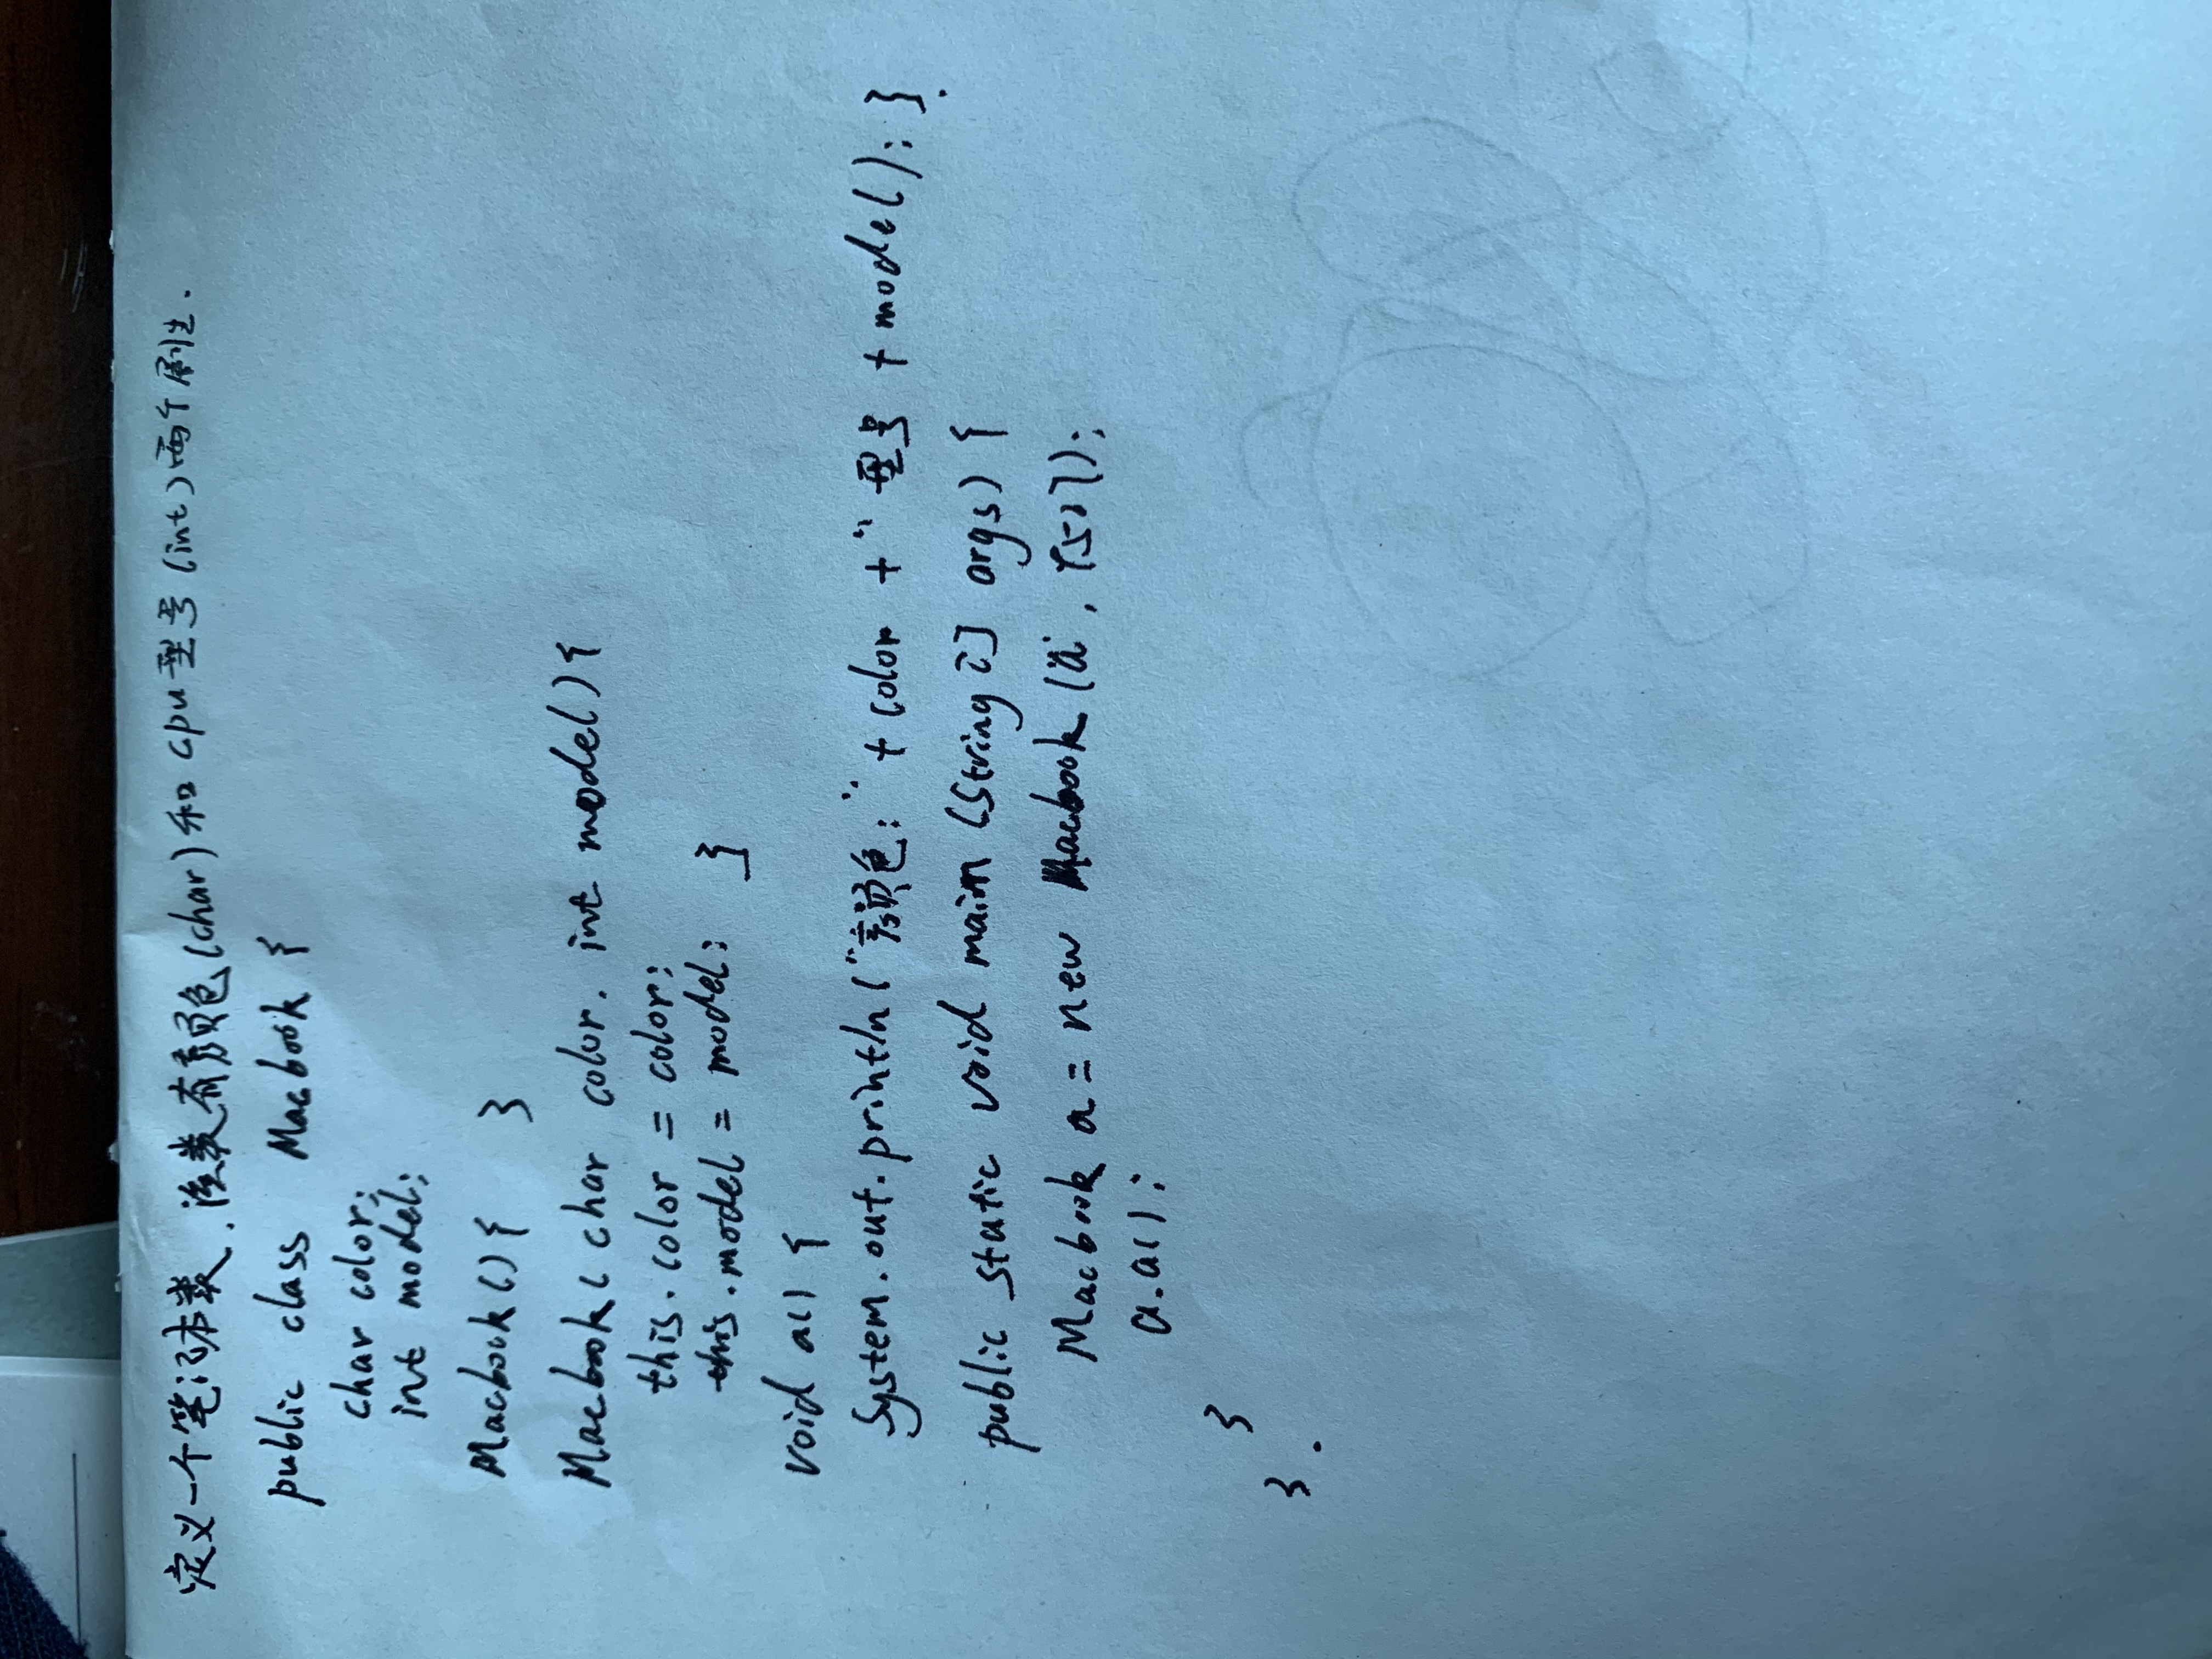 定义一个笔记本类.该类有颜色(char)和cpu型号(int)两个属性.
public class Macbook {
char color;
int model;
Macbook(){ }
Macbook(char color. int model){
this.color = color;
this.model = model; }
void a() {
System.out.println("颜色:" + color + " 型号 + model); }.
public static void main (String[] args) {
Macbook a = new Macbook('a', 1501);
a.a();
}
}.